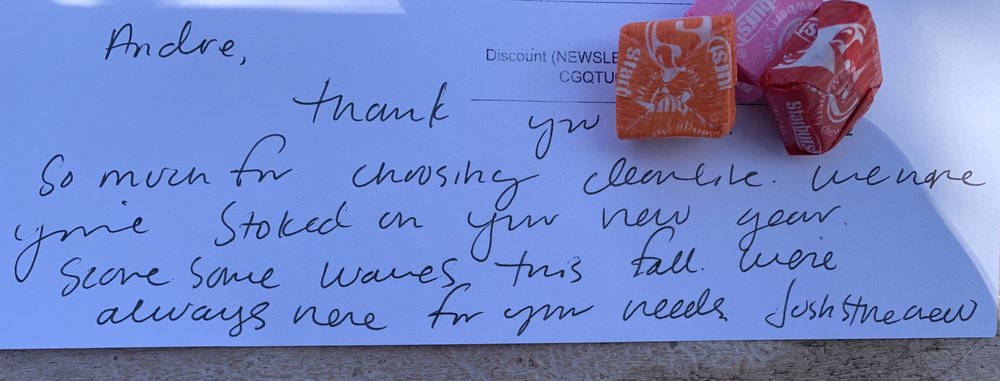 Andre,
Discount (NEWSLE
CGQTU
thank you
So much for choosing cleanline. We hope
you're Stoked on your new gear.
Score some waves this fall. We're
always here for your needs Josh & the crew
Starburst
Starburst